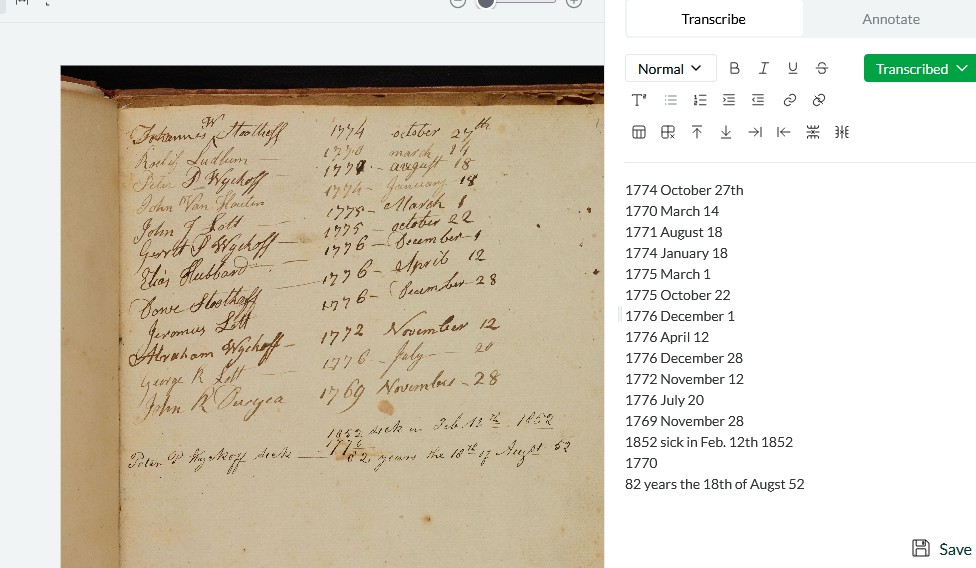 Johannes W Stoothoff 1774 october 27th
Roelif Ludlum — 1770 march 14
Peter P Wychoff 1771 - august 18
John Van Houten 1774 - January 18
John J Lott — 1775 - March 1
Gerrit P Wychoff — 1775 - october 22
Elias Hubbard — 1776 - December 1
Dowe Stoothoff — 1776 - April 12
Jeromus Lott 1776 - December 28
Abraham Wychoff - 1772 November 12
George R Lott — 1776 - July — 20
John R Duryea 1769 November - 28
1852 sick in Feb. 12th. 1852
1770
Peter P Wyckoff sick — 82 years the 18th of Augst 52
Transcribe
Annotate
Normal
B I U S
Transcribed
1774 October 27th
1770 March 14
1771 August 18
1774 January 18
1775 March 1
1775 October 22
1776 December 1
1776 April 12
1776 December 28
1772 November 12
1776 July 20
1769 November 28
1852 sick in Feb. 12th 1852
1770
82 years the 18th of Augst 52
Save